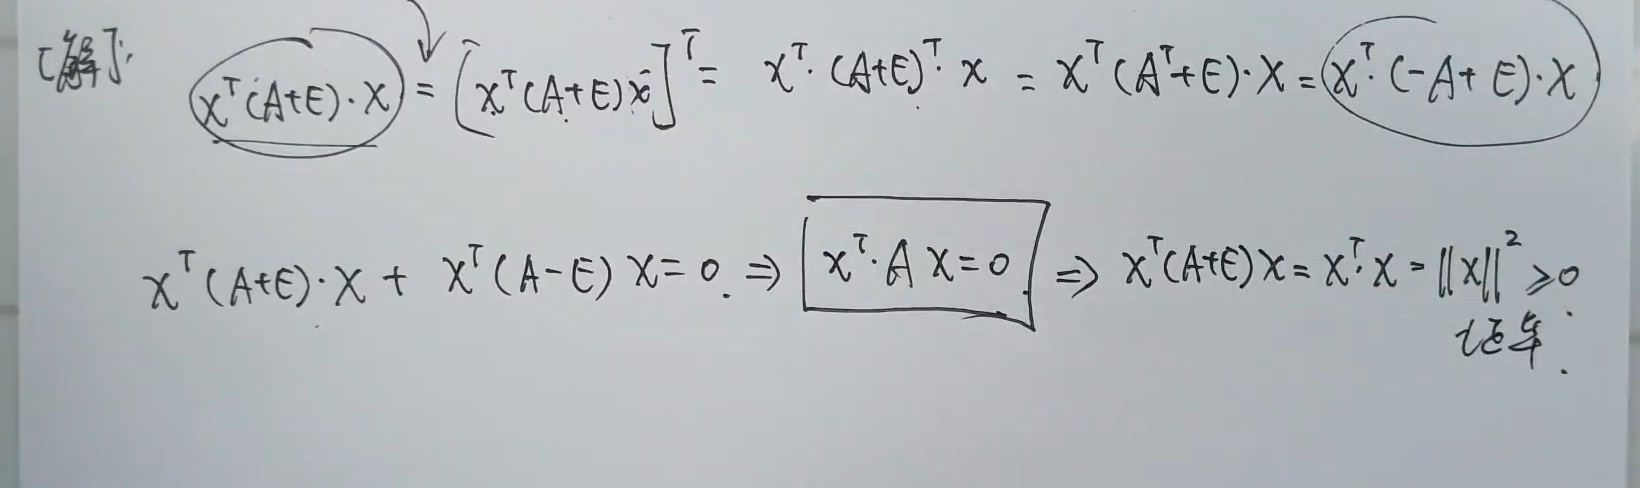 [解]: xᵀ(A+E)·x = [xᵀ(A+E)x]ᵀ = xᵀ·(A+E)ᵀ·x = xᵀ(Aᵀ+E)·x = xᵀ·(-A+E)·x
xᵀ(A+E)·x + xᵀ(A-E)x=0. ⇒ xᵀ·Ax=0. ⇒ xᵀ(A+E)x = xᵀ·x = ||x||² ≥0
证毕.